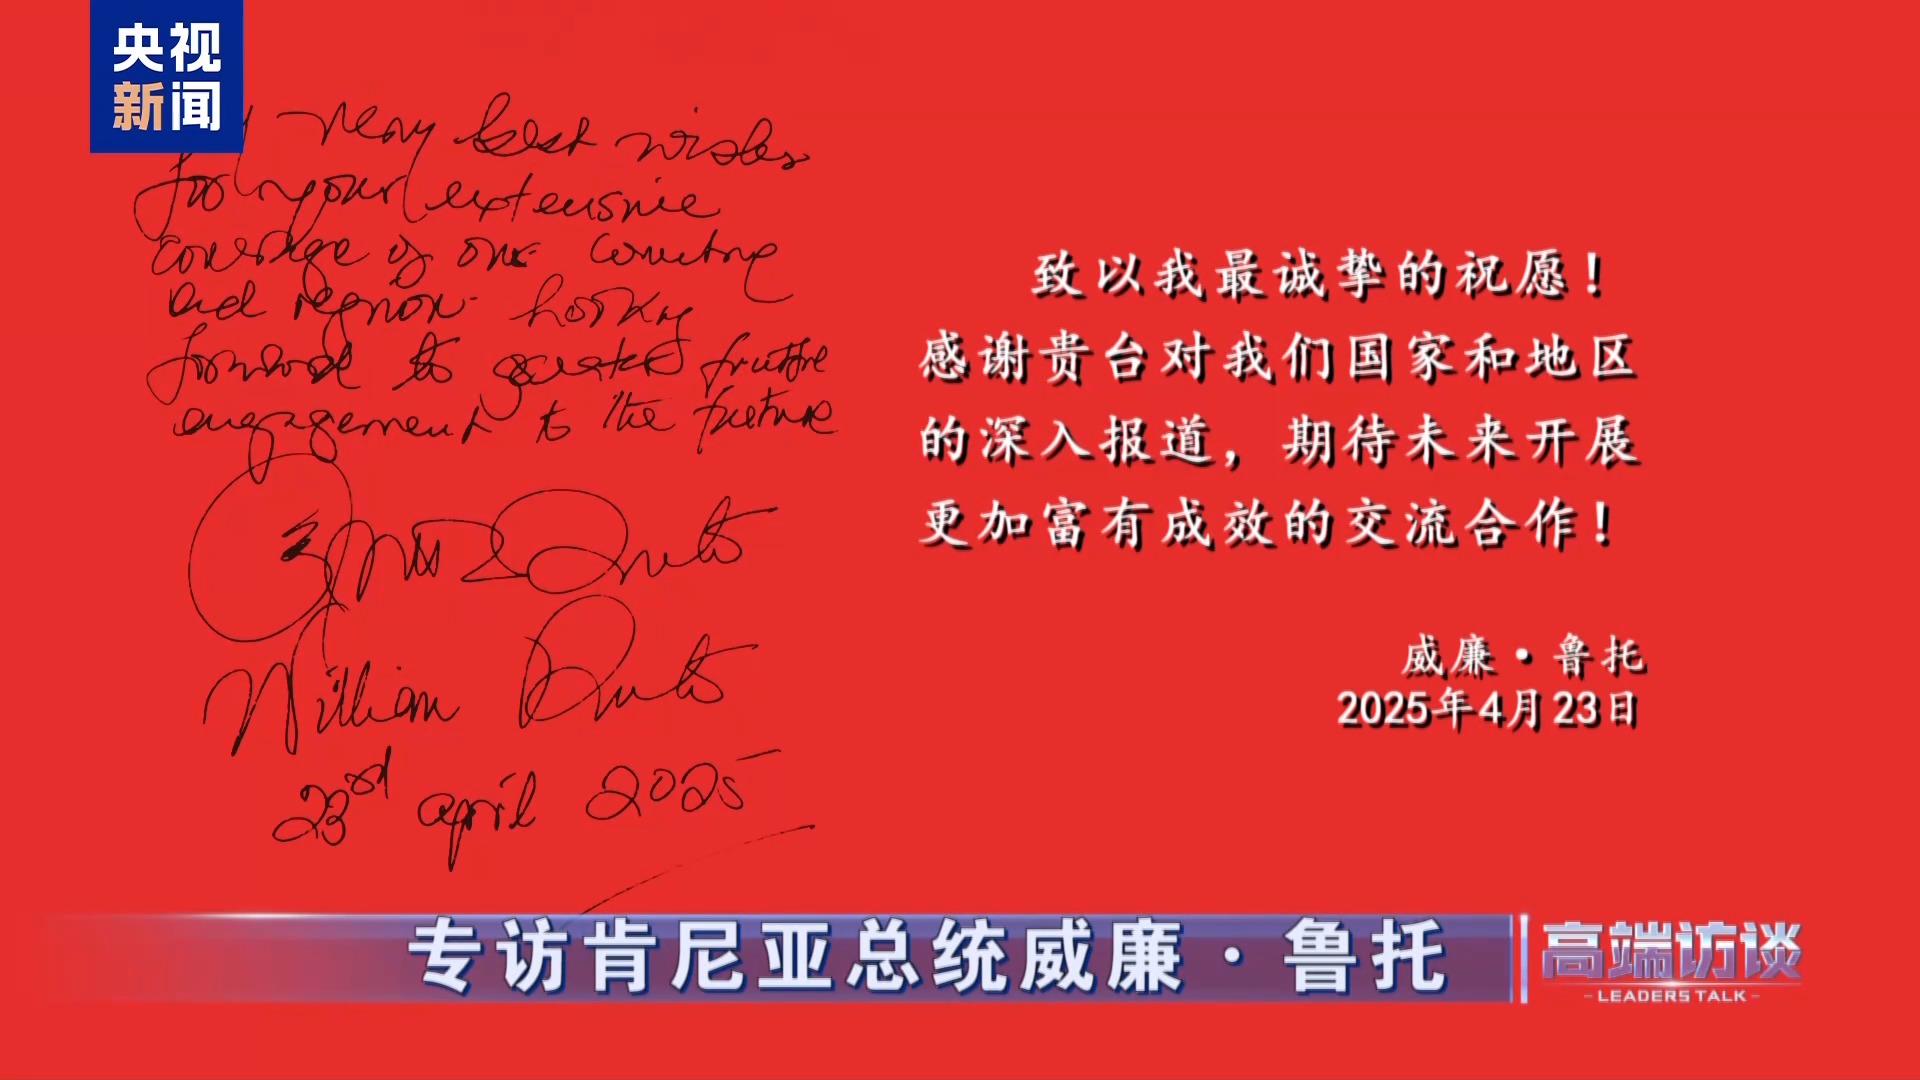 央视
新闻
very best wishes
for your extensive
coverage of our country
and region. looking
forward to greater fruitful
engagement to the future
William Ruto
23rd april 2025
致以我最诚挚的祝愿！
感谢贵台对我们国家和地区
的深入报道，期待未来开展
更加富有成效的交流合作！
威廉·鲁托
2025年4月23日
专访肯尼亚总统威廉·鲁托
高端访谈
LEADERS TALK